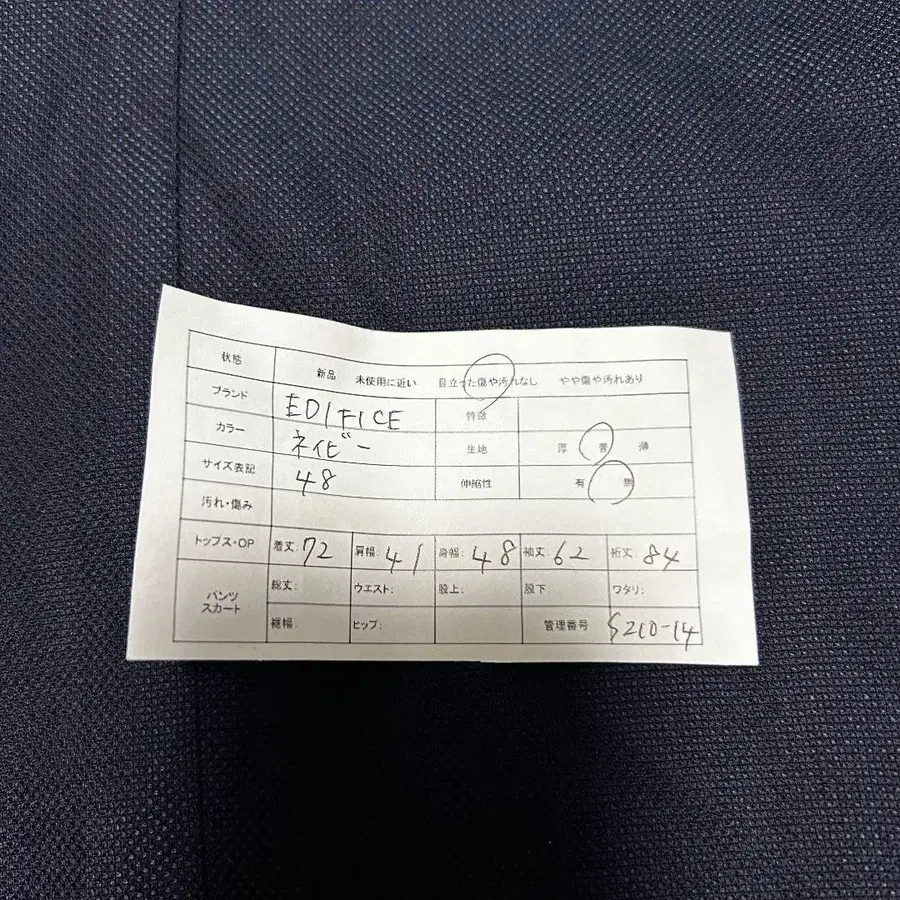 状態 新品 未使用に近い 目立った傷や汚れなし やや傷や汚れあり
ブランド EDIFICE 特徴
カラー ネイビー 生地 厚 普 薄
サイズ表記 48 伸縮性 有 無
汚れ・傷み
トップス・OP 着丈: 72 肩幅: 41 身幅: 48 袖丈: 62 裄丈: 84
パンツ スカート 総丈: ウエスト: 股上: 股下: ワタリ:
裾幅: ヒップ: 管理番号 S210-14